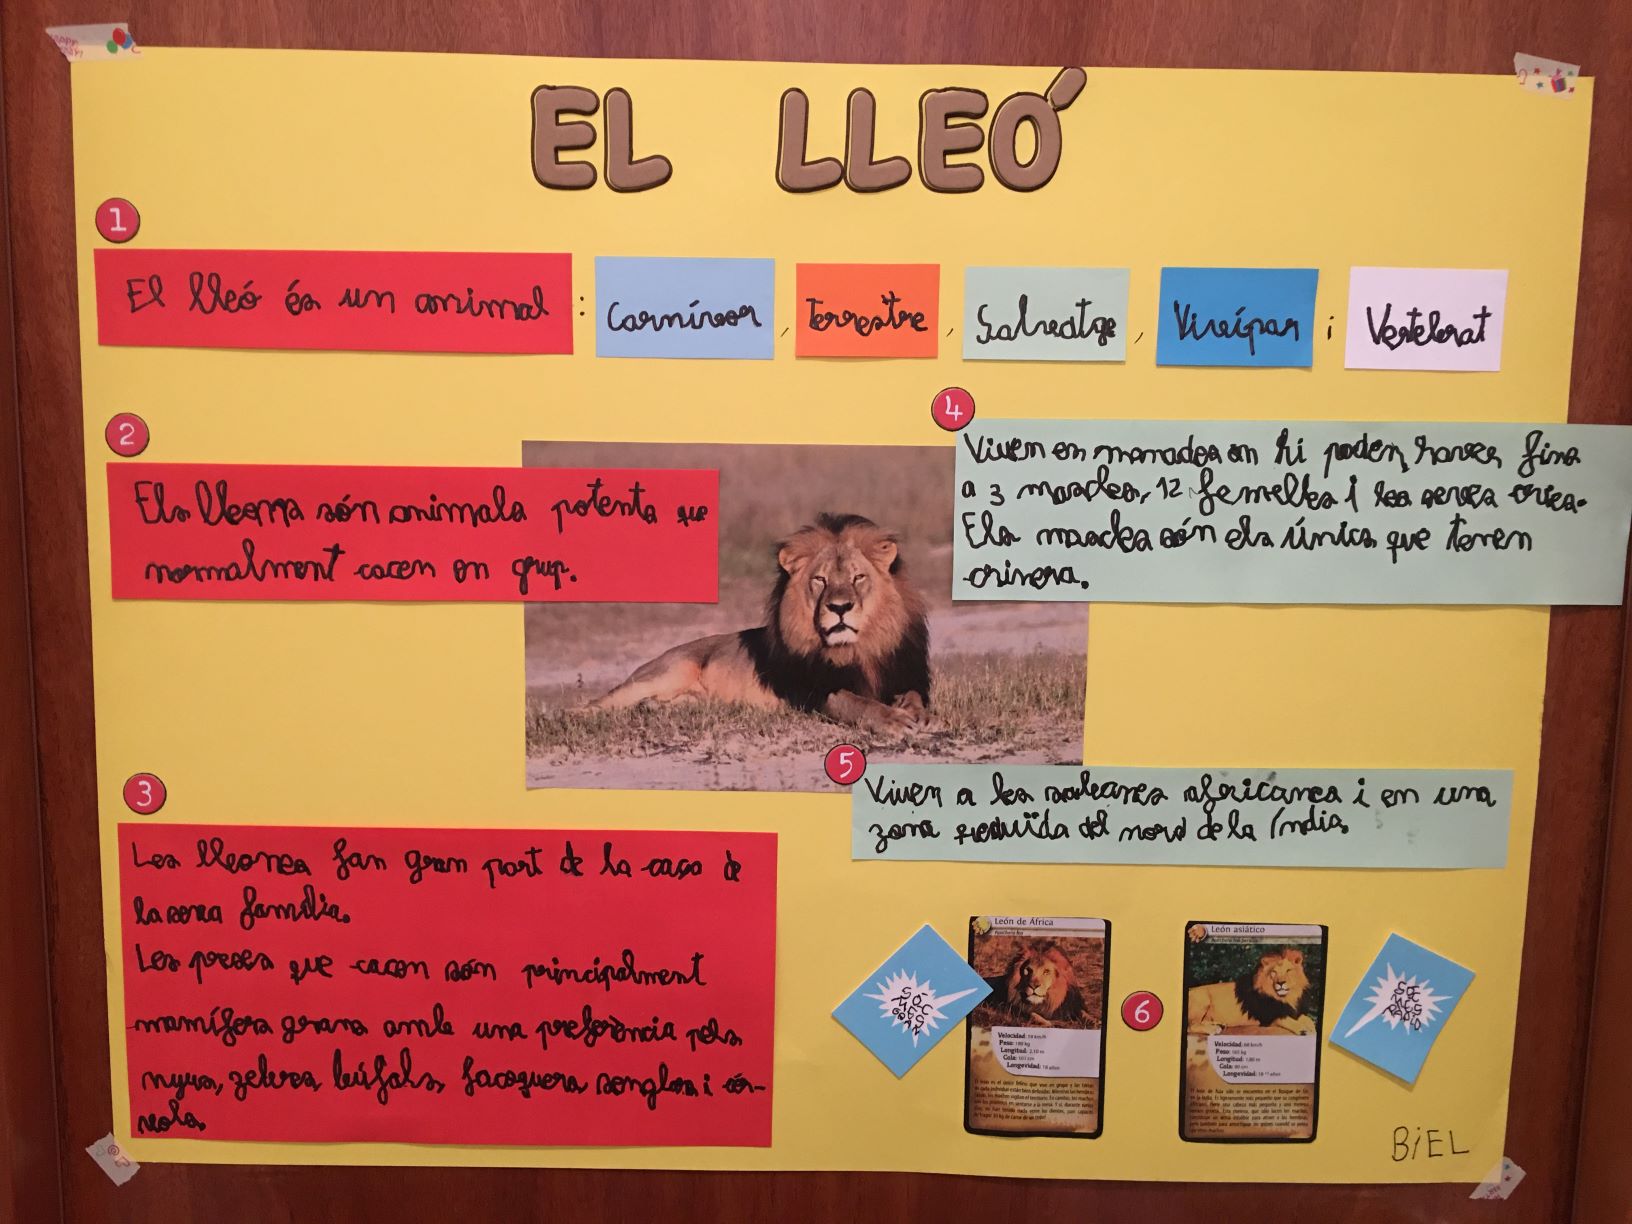 EL LLEÓ
1
El lleó és un animal : Carnívor , Terrestre , Salvatge , Vivípar i Vertebrat
2
Els lleons són animals potents que
normalment cacen en grup.
3
Les lleones fan gran part de la caça de
la seva família.
Les preses que cacen són principalment
mamífers grans amb una preferència pels
nyus, zebres, búfals, facoquers senglars i cér-
vols.
4
Viuen en manades on hi poden haver fins
a 3 mascles, 12 femelles i les seves cries.
Els mascles són els únics que tenen
crinera.
5
Viuen a les sabanes africanes i en una
zona reduïda del nord de la Índia.
León de África
Panthera leo
Velocidad: 59 km/h
Peso: 180 kg
Longitud: 2,10 m
Cola: 101 cm
Longevidad: 18 años
6
León asiático
Velocidad: 60 km/h
Peso: 165 kg
Longitud: 1,80 m
Cola: 90 cm
Longevidad: años
BiEL